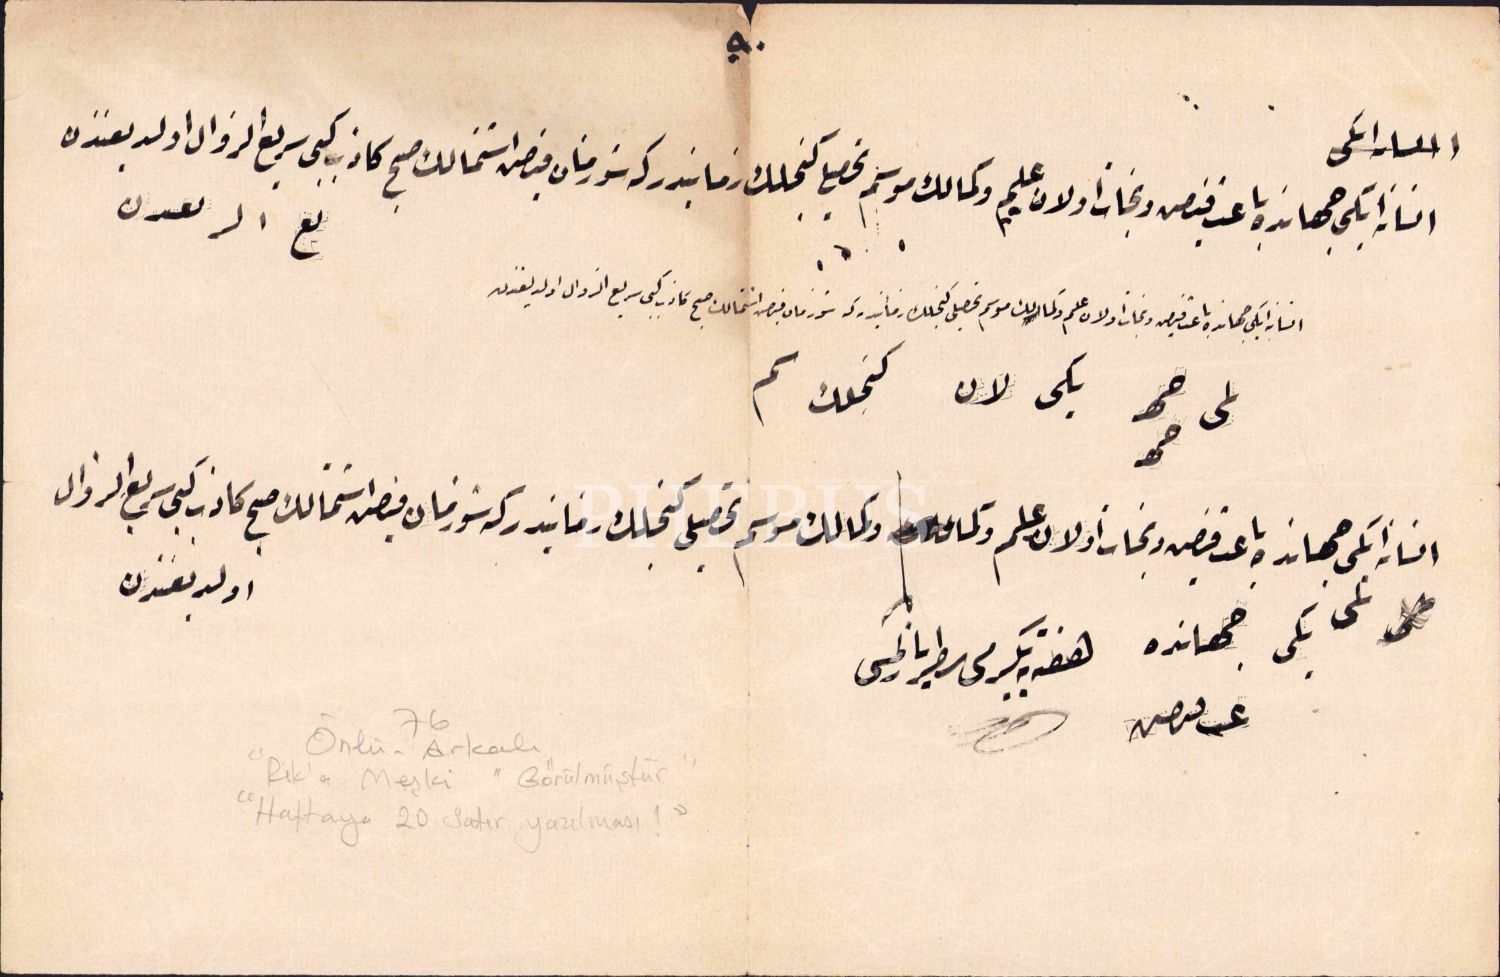 ٩٠
ا انسانه ایکی
انسانه ایکی جهانده باعث فیض و نجات اولان علم و کمالك موسم تحصیلی کنجلك زمانیدر که شو زمان فیض اشتمالك صبح کاذب کبی سریع الزوال اولدیغندن
یع الر لغندن
انسانه ایکی جهانده باعث فیض و نجات اولان علم و کمالك موسم تحصیلی کنجلك زمانیدر که شو زمان فیض اشتمالك صبح کاذب کبی سریع الزوال اولدیغندن
یکی لان کنجلك سم
انسانه ایکی جهانده باعث فیض و نجات اولان علم و کمالك و کمالك موسم تحصیلی کنجلك زمانیدر که شو زمان فیض اشتمالك صبح کاذب کبی سریع الزوال
اولدیغندن
یکی جهانده هفته یه یکرمی سطر یازلمسی
عث فیض
76
Önlü - Arkalı
"Rik'a Meşki" "Görülmüştür"
"Haftaya 20 satır yazılması!"
PHEBUS